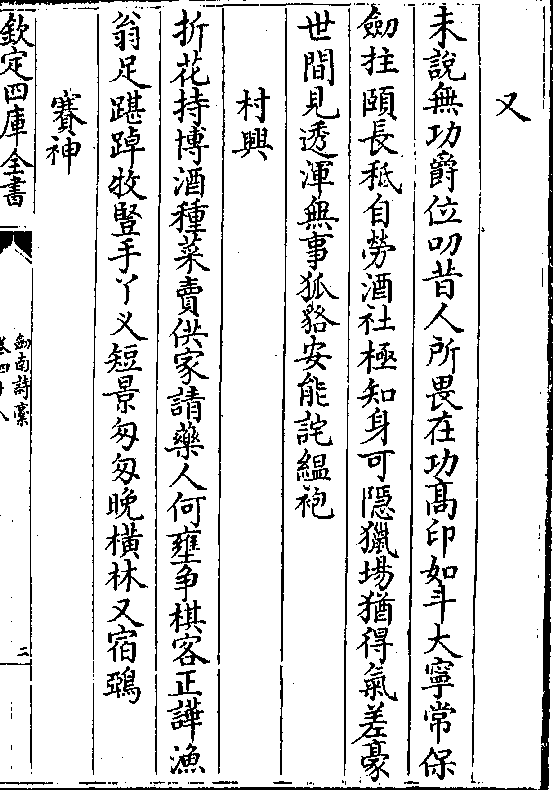 又
未說無功爵位叨昔人所畏在功髙印如斗大寧常保
劔拄頥長秪自勞酒社極知身可隠獵塲猶得氣差豪
世間見透渾無事狐貉安能詫緼袍
村興
折花持博酒種菜賣供家請藥人何壅争棋客正譁漁
翁足踸踔牧豎手丫义短景匆匆晩橫林又宿鵶
賽神
欽定四庫全書
劔南詩藁
卷四十八
三